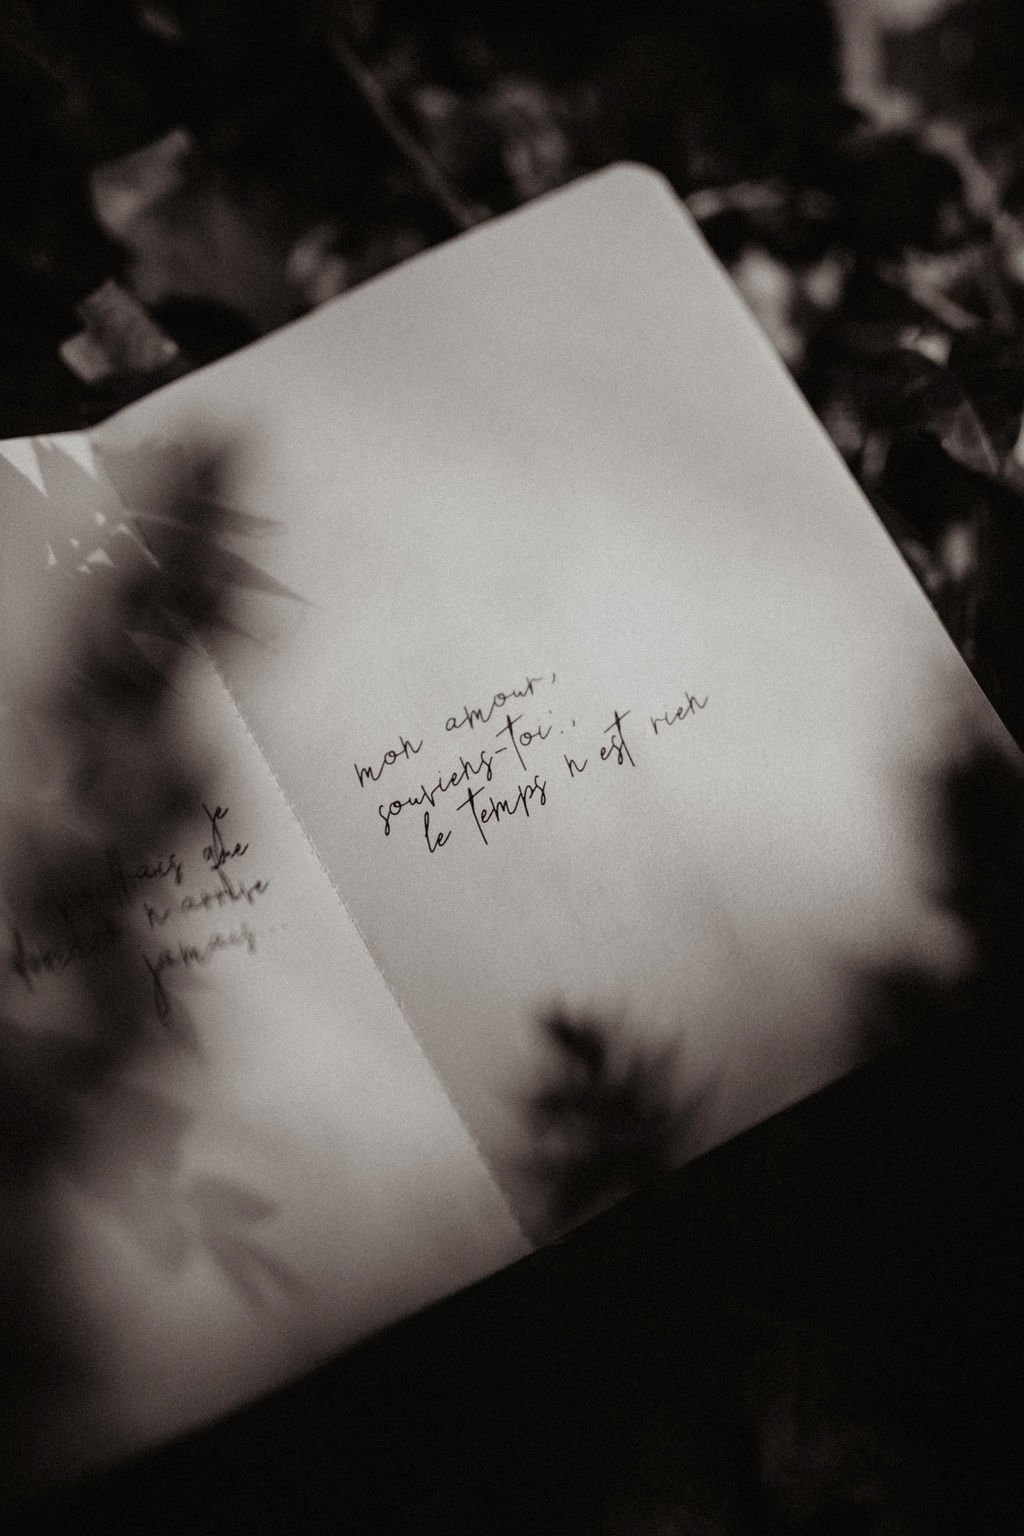 je
que
n arrive
jamais...
mon amour,
souviens-toi..,
le temps n est rien